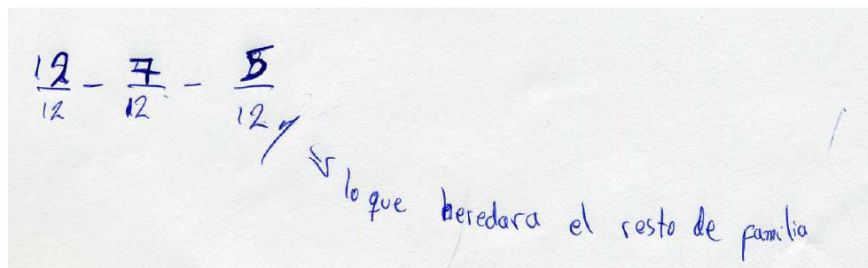 12/12 - 7/12 - 5/12
lo que heredara el resto de familia